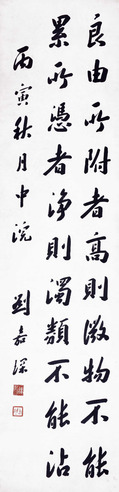 良由所附者高則微物不能
累所憑者浄則濁類不能沾
丙寅秋月中浣
劉嘉深